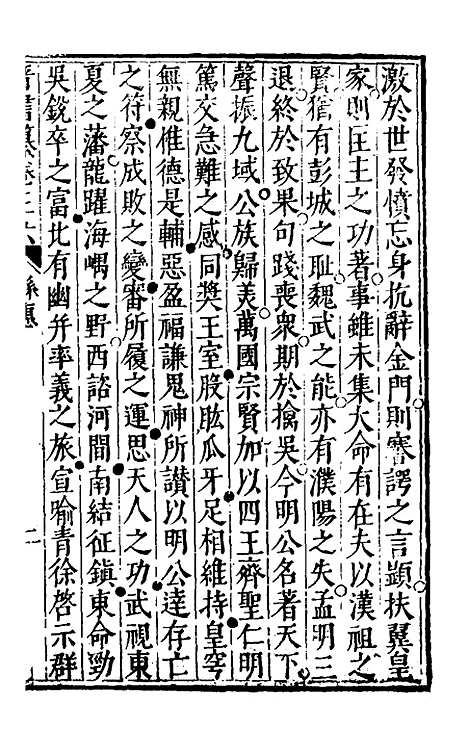 激於世發憤忘身抗辭金門則謇諤之言顯扶翼皇
家則匡主之功著事雖未集大命有在夫以漢祖之
賢猶有彭城之恥魏武之能亦有濮陽之失孟明三
退終於致果句踐喪衆期於擒吳今明公名著天下
聲振九域公族歸美萬國宗賢加以四王齊聖仁明
篤交急難之感同奬王室股肱瓜牙足相維持皇穹
無親惟德是輔惡盈福謙鬼神所讃以明公達存亡
之符察成敗之變審所履之運思天人之功武視東
夏之藩龍躍海嵎之野西諮河間南結征鎭東命勁
吳鋭卒之富北有幽并率義之旅宣喻青徐啓示群
晉書纂卷之六 孫惠 二